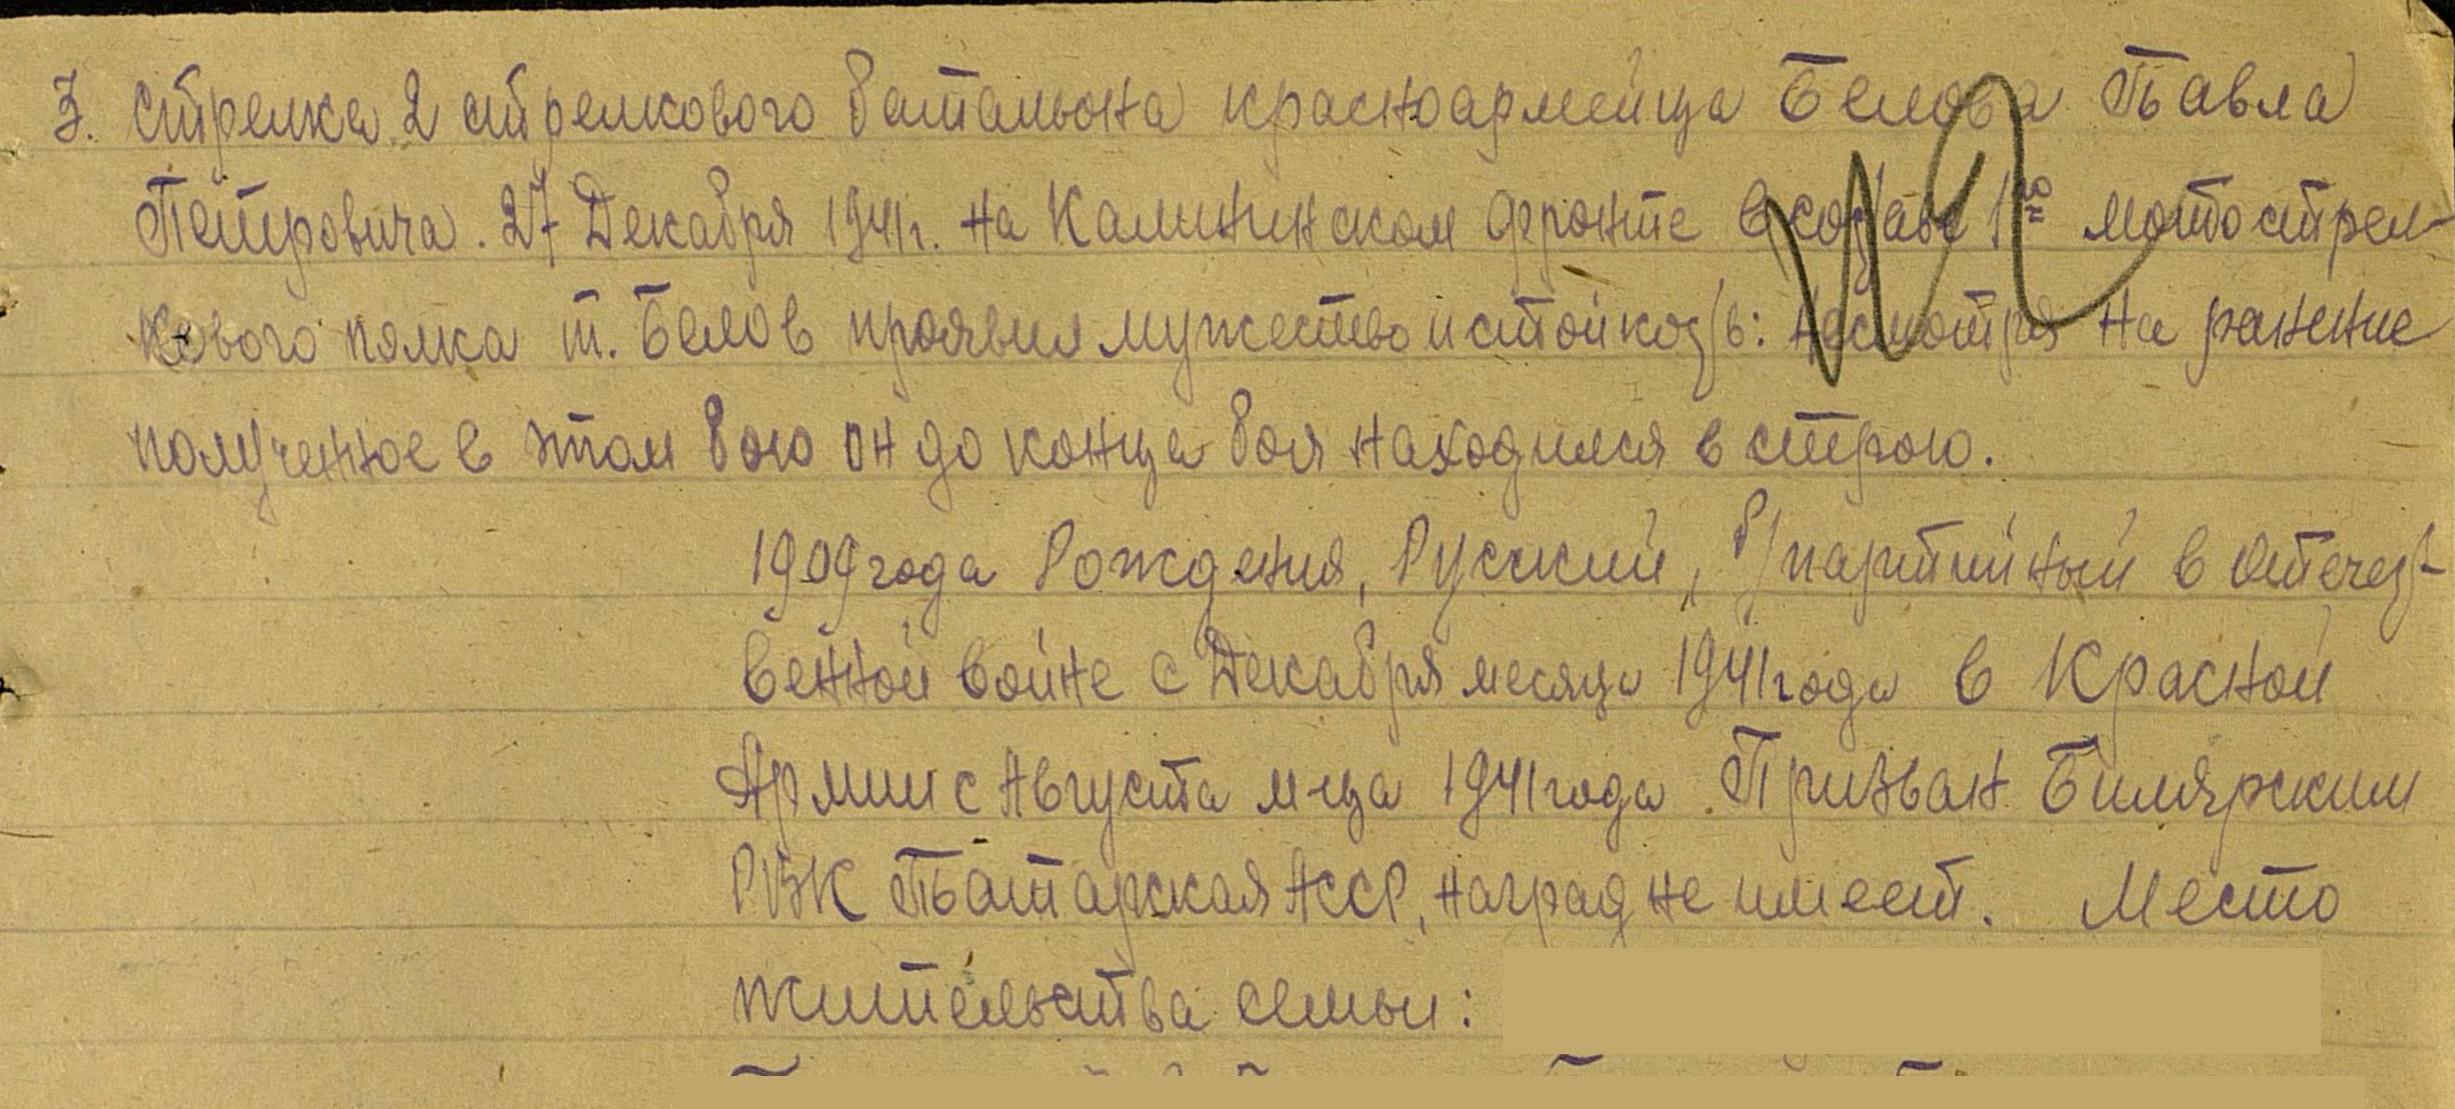 3. Стрелка 2 стрелкового батальона красноармейца Белова Павла
Петровича. 27 Декабря 1941г. на Калининском фронте в составе 1го мотострел-
кового полка т. Белов проявил мужество и стойкость: несмотря на ранение
полученное в этом бою он до конца боя находился в строю.
1909 года Рождения, Русский, б/партийный в Отечест-
венной войне с Декабря месяца 1941 года в Красной
Армии с Августа м-ца 1941 года. Призван Билярским
РВК Татарская АССР, наград не имеет. Место
жительства семьи: